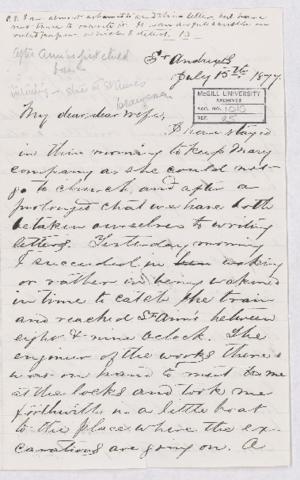 P.S. I am almost ashamed to send this letter, but have
not time to rewrite it.
After Ann's first child
St Andrews
July 15th 1877.
McGILL UNIVERSITY
ARCHIVES
ACC. NO. 1010
REF. 25
My dear, dear wife,
I have stayed
in this morning to keep Mary
company as she could not
go to church, and after a
prolonged chat we have both
betaken ourselves to writing
letters. Yesterday morning
I succeeded in waking
or rather in being wakened
in time to catch the train
and reached St Ann's between
eight & nine oclock. The
engineer of the works there
was on hand to meet me
at the locks and took me
forthwith in a little boat
to the place where the ex-
cavations are going on. A